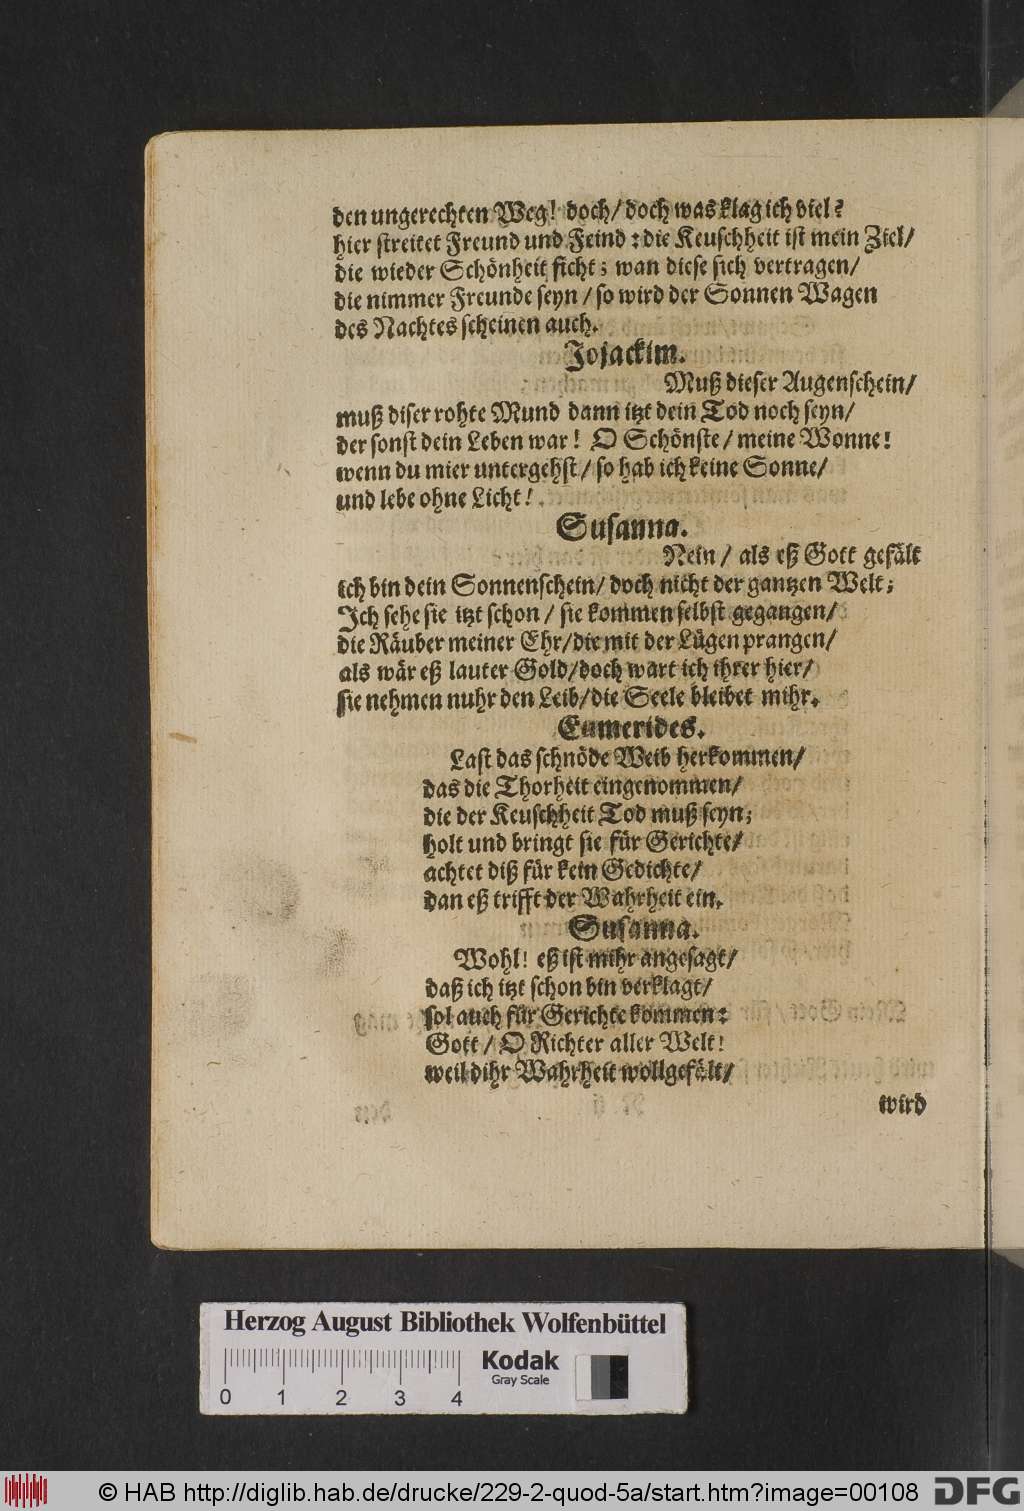 den ungerechten Weg! doch/ doch was klag ich viel?
hier streitet Freund und Feind: die Keuschheit ist mein Ziel/
die wieder Schönheit ficht; wan diese sich vertragen/
die nimmer Freunde seyn / so wird der Sonnen Wagen
des Nachtes scheinen auch.
Jojackim.
Muß dieser Augenschein/
muß diser rohte Mund dann itzt dein Tod noch seyn/
der sonst dein Leben war! O Schönste / meine Wonne!
wenn du mier untergehst / so hab ich keine Sonne/
und lebe ohne Licht!
Susanna.
Nein / als eß Gott gefält
ich bin dein Sonnenschein/ doch nicht der gantzen Welt;
Ich sehe sie itzt schon / sie kommen selbst gegangen/
die Räuber meiner Ehr/ die mit der Lügen prangen/
als wär eß lauter Gold/ doch wart ich ihrer hier/
sie nehmen nuhr den Leib/ die Seele bleibet mihr.
Eumerides.
Last das schnöde Weib herkommen/
das die Thorheit eingenommen/
die der Keuschheit Tod muß seyn;
holt und bringt sie für Gerichte/
achtet diß für kein Gedichte/
dan eß trifft der Wahrheit ein.
Susanna.
Wohl! eß ist mihr angesagt/
daß ich itzt schon bin verklagt/
sol auch für Gerichte kommen:
Gott / O Richter aller Welt!
weil dihr Wahrheit wollgefält/
wird
Herzog August Bibliothek Wolfenbüttel
Kodak
Gray Scale
0 1 2 3 4
© HAB http://diglib.hab.de/drucke/229-2-quod-5a/start.htm?image=00108
DFG